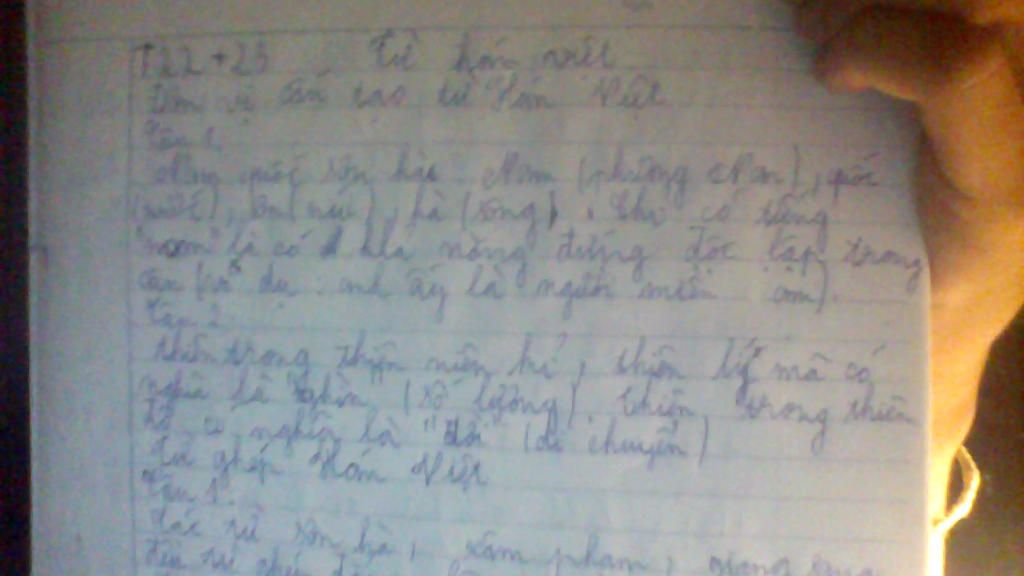 T22+23 Từ hán việt
Đơn vị cấu tạo từ Hán Việt
Câu 1.
Nam quốc sơn hà: Nam (phương Nam), quốc
(nước), sơn (núi), hà (sông). Chỉ có tiếng
"nam" là có khả năng đứng độc lập trong
câu (ví dụ: anh ấy là người miền nam).
Câu 2.
thiên trong thiên niên kỉ, thiên lý mã có
nghĩa là nghìn (số lượng). thiên trong thiên
đô có nghĩa là "dời" (di chuyển)
Từ ghép Hán Việt
Câu 1:
Các từ sơn hà, xâm phạm, giang sơn
đều